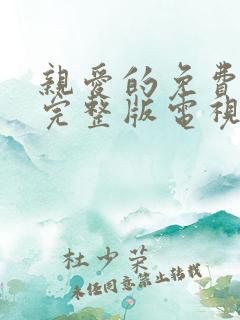 親愛的免費
完整版電視
杜少荣
未经同意禁止转载